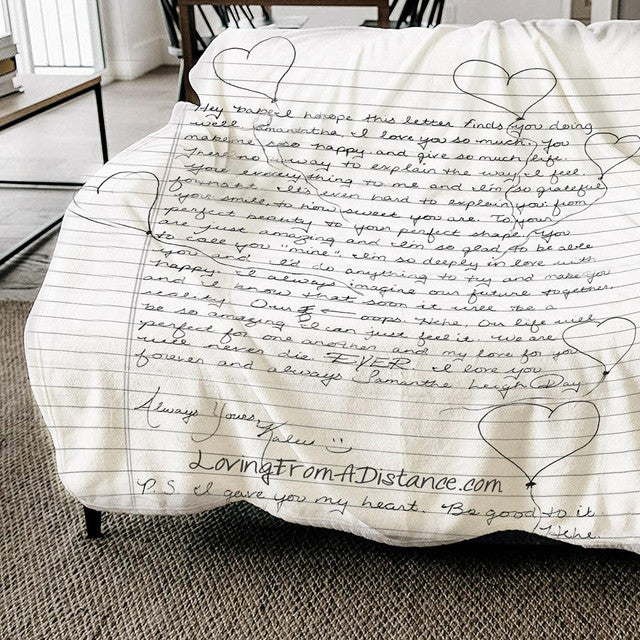 Hey babe! I hope this letter finds you doing
well Samantha. I love you so much. You
make me so happy and give so much life.
There no way to explain the way I feel.
You everything to me and I'm so grateful
for that. It's even hard to explain you from
your smile to how sweet you are. To your
perfect beauty to your perfect shape. You
are just amazing and I'm so glad to be able
to call you "mine". I'm so deeply in love with
you and I'd do anything to try and make you
happy. I always imagine our future together.
and I know that soon it will be a
reality. Our oops. Hehe. Our life will
be so amazing I can just feel it. We are
perfect for one another and my love for you
will never die EVER. I love you
forever and always Samantha Leigh Day
Always Yours,
Kaleu :)
LovingFromADistance.com
P.S. I gave you my heart. Be good to it
Hehe.